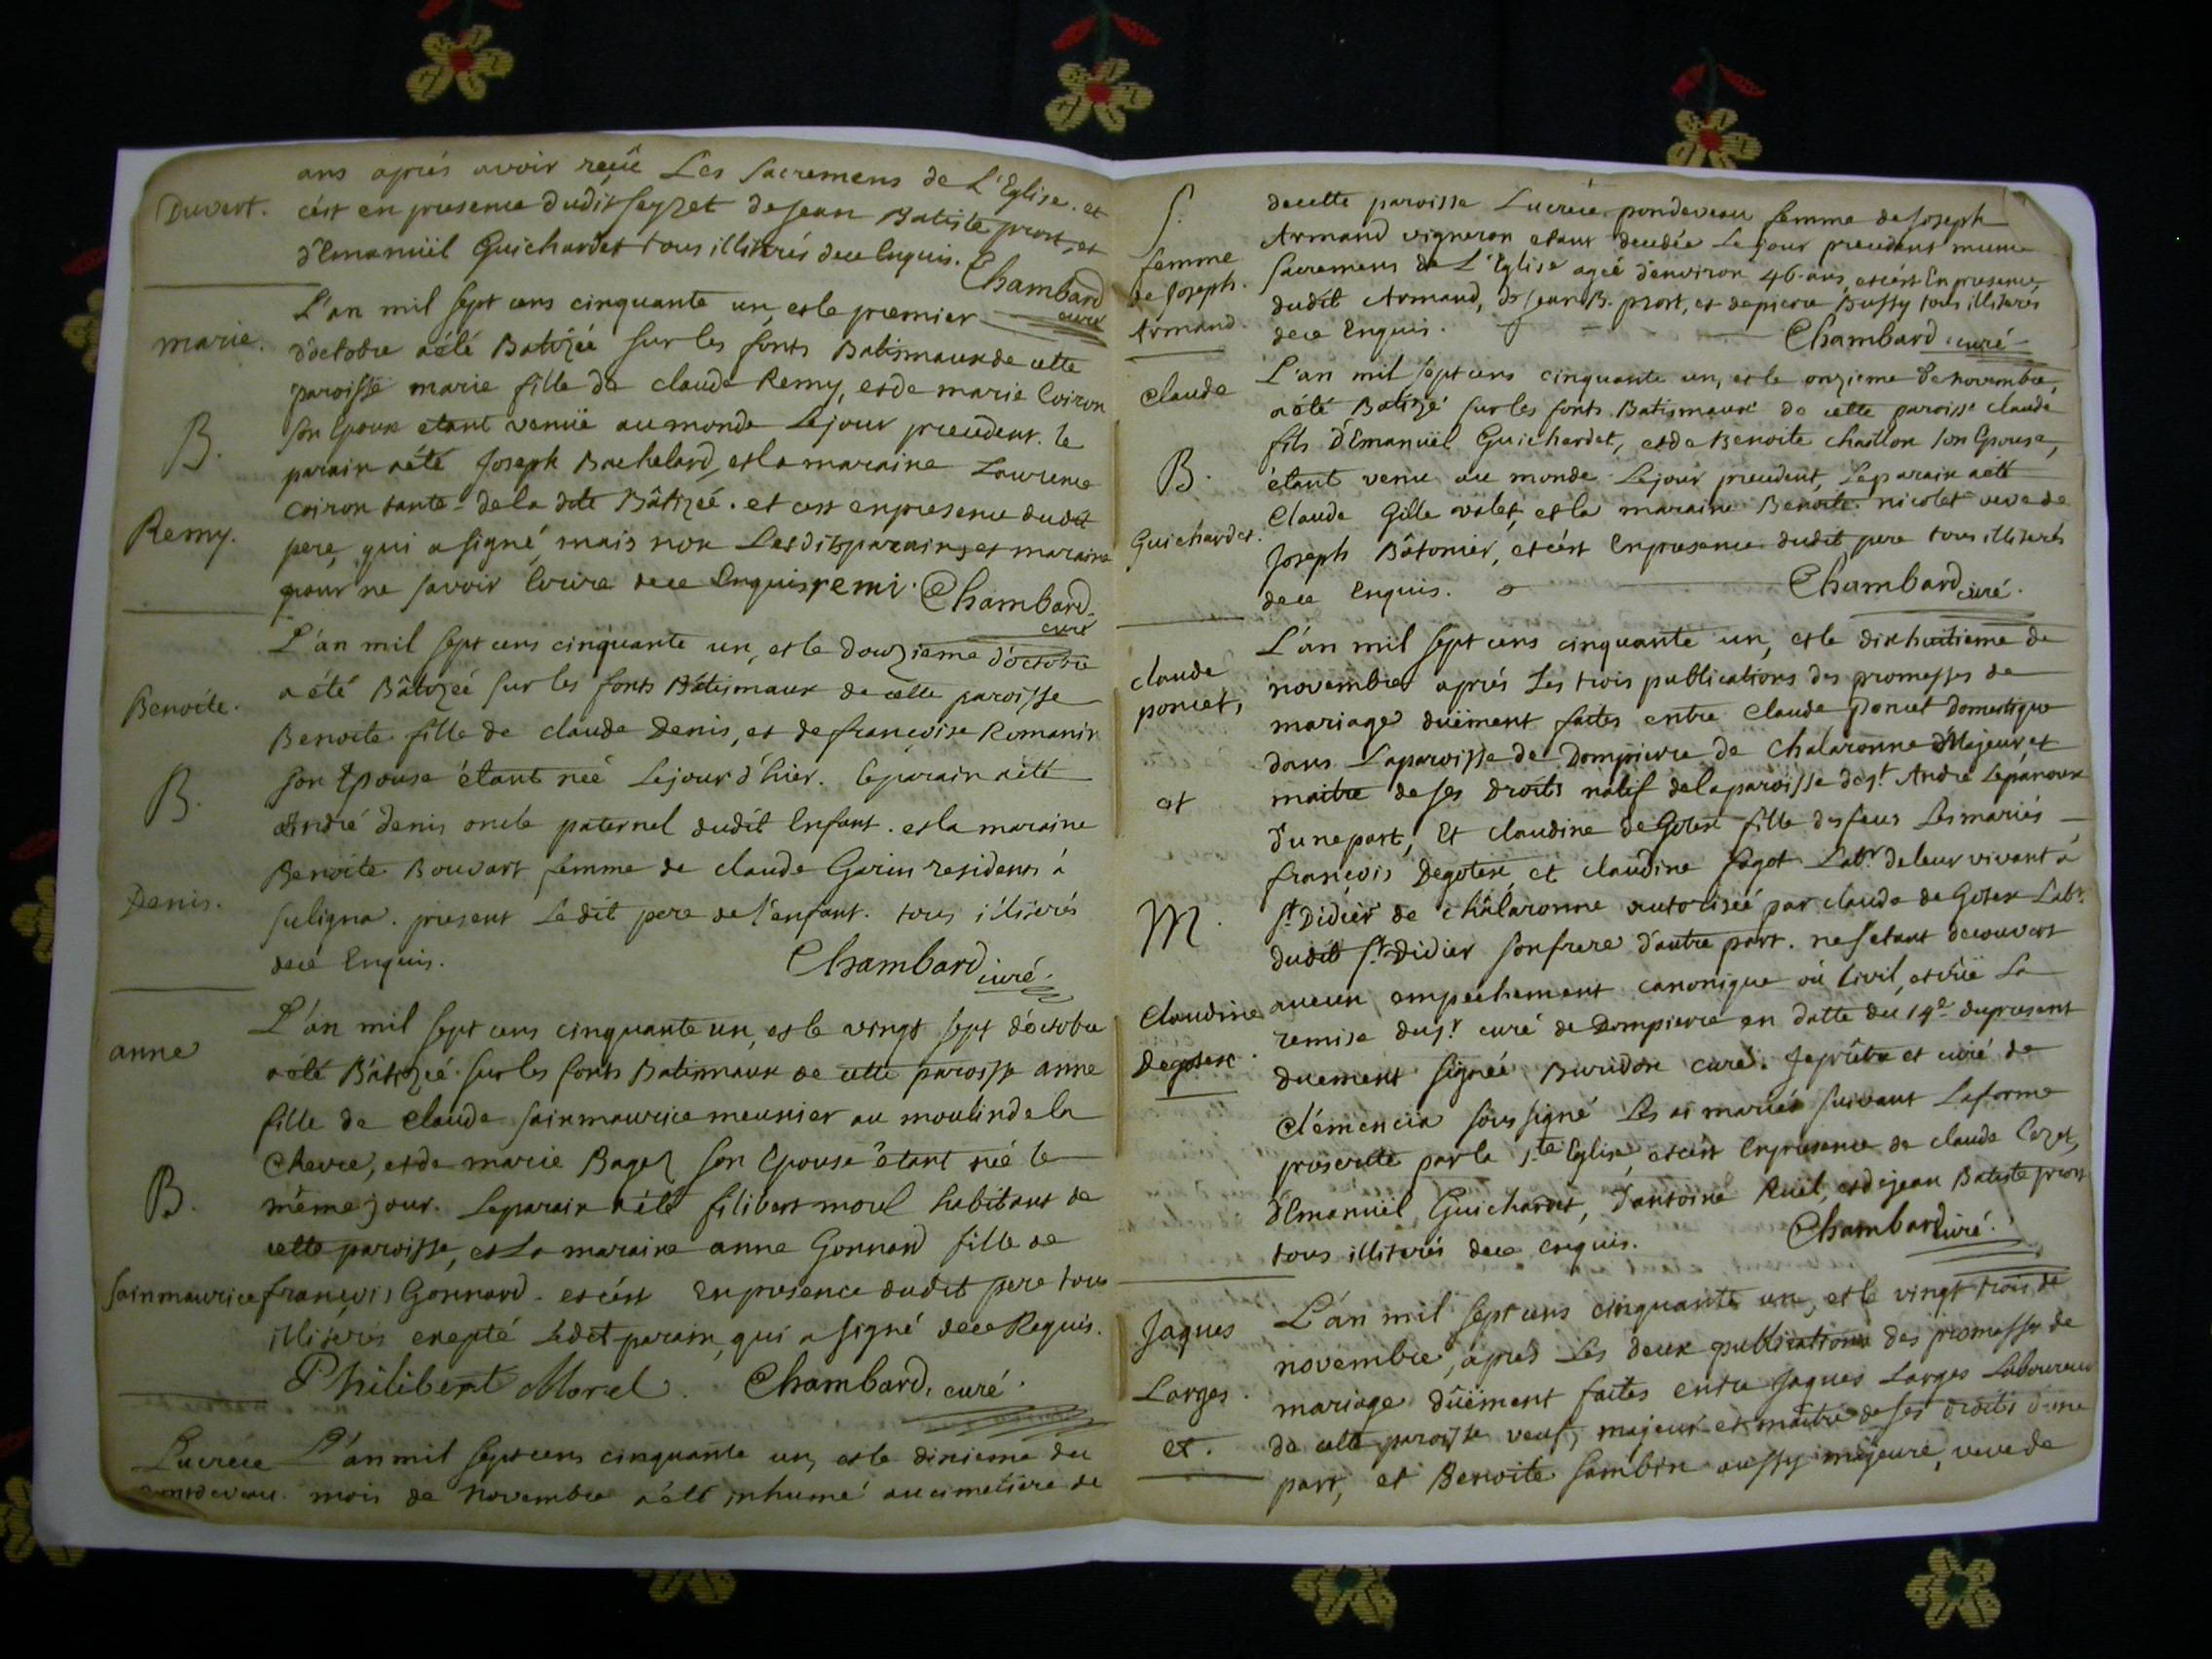 ans aprés avoir reçüe Les Sacremens de L'Eglise. et
Duvert. c'ést en presence dudit Seyzet de Jean Batiste prost, et
d'Emanuël Guichardet tous illiterés dece Enquis.
Chambard
curé
L'an mil sept cens cinquante un, et le premier
marie. d'octobre a été Batizée sur les fonts Batismaux de cette
paroisse marie fille de claude Remy, et de marie Coiron
B. son Epoux etant venüe au monde Le jour precedent. le
parain a été Joseph Bachelard, et la maraine Laurence
coiron tante de la dite Bâtizeé. et cest en presence dudit
Remy. pere, qui a signé, mais non Lesdits parain, et maraine
pour ne savoir Ecrire dece Enquis remi. Chambard
curé
L'an mil sept cens cinquante un, et le douzieme d'octobre
a été Bâtizeé sur les fonts Bâtismaux de cette paroisse
Benoite. Benoite fille de claude Denis, et de francoise Romanin
son Epouse étant neé Le jour d'hier. Le parain a été
B. André Denis oncle paternel dudit Enfant. et la maraine
Benoite Bouvart femme de claude Gorin residens à
Denis. suligna. present Le dit pere de l'enfant. tous illiterés
dece Enquis. Chambard curé
L'an mil sept cens cinquante un, et le vingt sept d'octobre
anne a été Bâtizeé sur les fonts Batismaux de cette paroisse anne
fille de Claude Sainmaurice meunier au moulin de la
Chevre, et de marie Bagel son Epouse étant neé le
B. même jour. Le parain a été filibert morel habitant de
cette paroisse, et La maraine anne Gonnard fille de
Sainmaurice françois Gonnard. et cést En presence dudit pere tous
illiterés exepté Ledit parain, qui a signé dece Requis.
Philibert Morel. Chambard, curé.
Lucrece L'an mil sept cens cinquante un, et le dixieme du
pondeveau. mois de Novembre a été inhumé au cimetiere de
S. decette paroisse Lucrece pondeveau femme de Joseph
Armand vigneron etant decedée Le jour precedent munie
femme Sacremens de L'Eglise ageé d'environ 46. ans, et cést En presence
de Joseph. dudit Armand, de Jean B. prost, et de pierre Bussy tous illiterés
Armand. dece Enquis. Chambard curé
L'an mil sept cens cinquante un, et le onzieme de novembre,
Claude a été Batizé sur les fonts Batismaux de cette paroisse claude
fils d'Emanuël Guichardet, et de Benoite chaillon son Epouse,
B. étant venu au monde Le jour precedent, Le parain a été
Claude Gille valet, et la maraine Benoite nicolet veve de
Guichardet. Joseph Bâtonier, et cést En presence dudit pere tous illiterés
dece Enquis. Chambard curé.
L'an mil sept cens cinquante un, et le dixhuitieme de
claude novembre aprés Les trois publications des promesses de
poncet, mariage duëment faites entre Claude poncet Domestique
dans La paroisse de Dompierre de Chalaronne Majeur et
et maitre de ses Droits natif de la paroisse de st. André Le panoux
d'une part, Et claudine de Gotex fille des feus Les mariés
françois Degotex et claudine fagot Labr. de leur vivant à
M. st. Didier de châlaronne autoriseé par claude de Gotex Labr.
dudit st. Didier son frere d'autre part. ne setant decouvert
Claudine aucun empechement canonique où Civil, et vüe La
remise du sr. curé de Dompierre en datte du 14e. du present
Degotex. duement signeé Buridon curé. Je prêtre et curé de
Clémencia soussigné Les ai mariés suivant La forme
prescritte par la ste. Eglise et cést En presence de claude Cozet,
d'Emanuël Guichardet, d'antoine Ruël, et de jean Batiste prost
tous illiterés dece enquis. Chambard curé.
Jaques L'an mil sept cens cinquante un, et le vingt trois de
novembre, aprés Les deux publications des promesses de
Larges. mariage duëment faites entre Jaques Larges Laboureur
et. de cette paroisse veuf, majeur et maitre de ses droits d'une
part, et Benoite Sambin aussy majeure, veve de